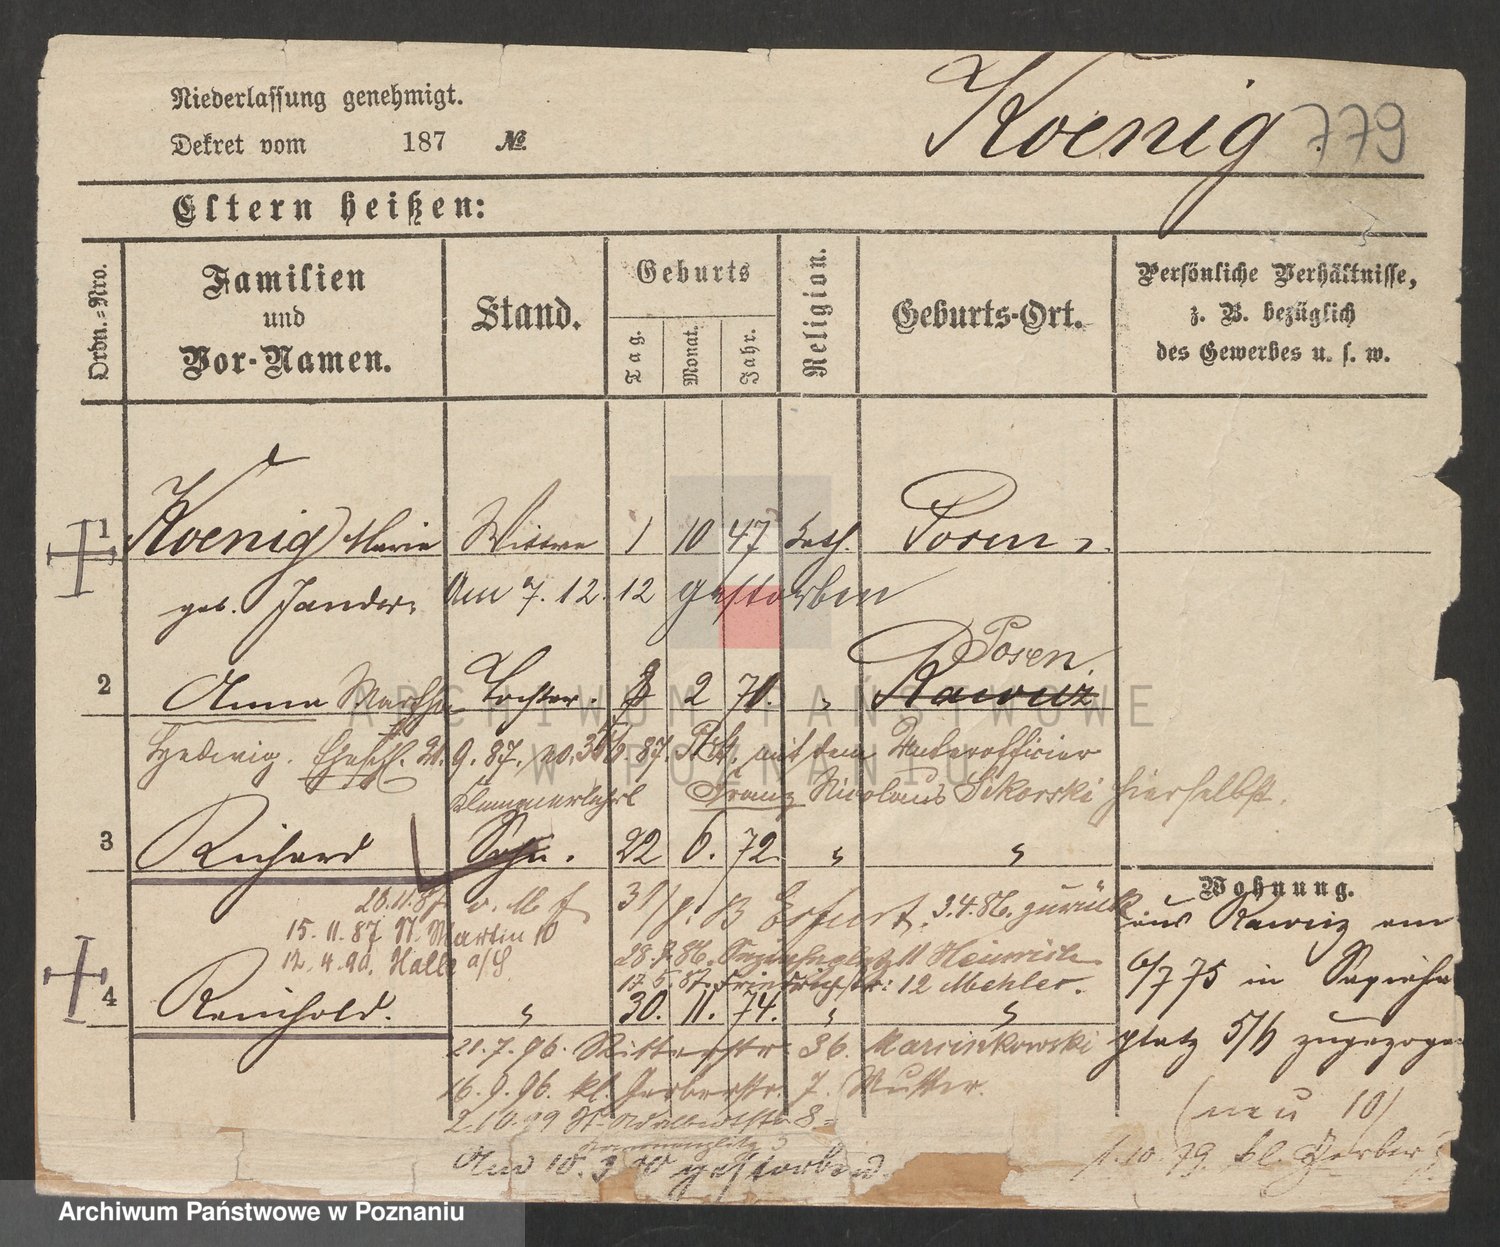 Niederlassung genehmigt.
Dekret vom 187 №
Koenig. 779
Eltern heißen:
Ordn.=Nro.
Familien und Vor-Namen.
Stand.
Geburts
Tag. Monat. Jahr.
Religion.
Geburts-Ort.
Persönliche Verhältnisse, z. B. bezüglich des Gewerbes u. s. w.
1 Koenig Marie Wittwe 1 10 47 kath. Posen
geb. Jander Am 7. 12. 12 gestorben
Posen.
2 Anna Martha Tochter. 2 71. " Rawicz
Hedwig. 21. 9. 87. mit dem Unteroffizier
Klempnerlehrl Franz Nicolaus Sikorski hierselbst.
3 Richard Sohn. 22 6. 72. " "
Wohnung.
28.11.87 v. Erfurt. 3.4.86. zurück
15. 11. 87 St. Martin 10
aus Rawicz am
12. 4. 90. Halle a/S 11 Heinrich
6/7 75 in Sapieha
St. Friedrichstr: 12 Mehler.
4 Reinhold. " 30. 11. 74. " "
platz 5/6 zugezogen
21. 7. 96. Ritterstr 36. Marcinkowski
(neu 10)
16. 9. 96. kl. Gerberstr. 7. Mutter.
2 10. 99 St. Adalbertstr 8
1. 10. 79. kl. Gerber
Am 18. 3 gestorben.
ARCHIWUM PAŃSTWOWE
W POZNANIU
Archiwum Państwowe w Poznaniu